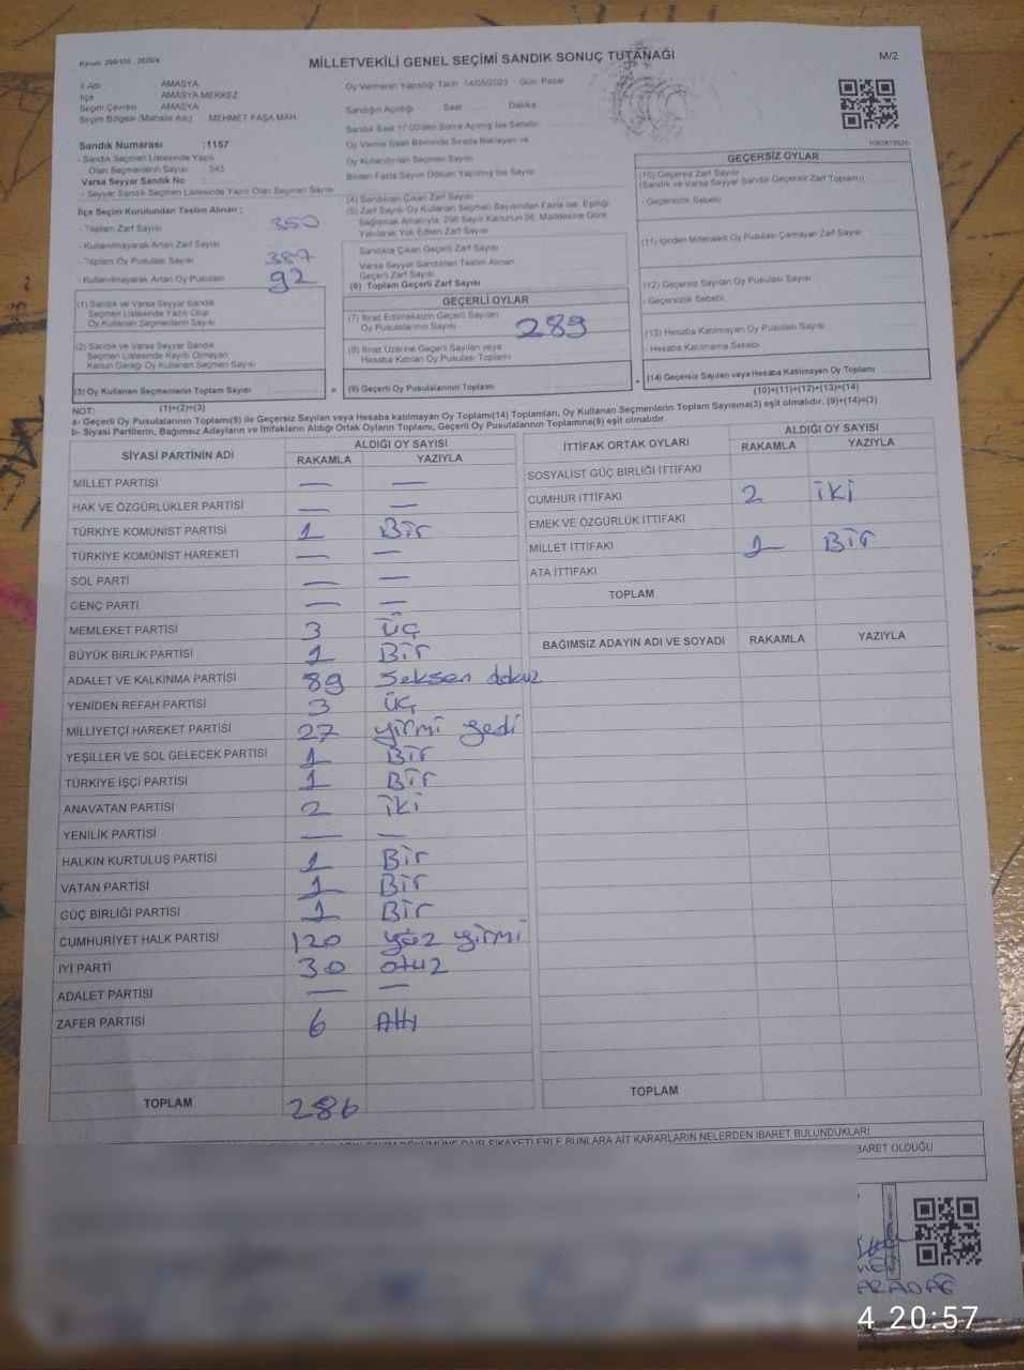 MİLLETVEKİLİ GENEL SEÇİMİ SANDIK SONUÇ TUTANAĞI
M/2
AMASYA
AMASYA MERKEZ
AMASYA
MEHMET PAŞA MAH.
Oy Vermenin Yapıldığı Tarih 14/05/2023 - Gün Pazar
Sandığın Açıldığı Saat Dakika
Sandık Numarası :1157
Sandık Seçmen Listesinde Yazılı
Olan Seçmenlerin Sayısı
Varsa Seyyar Sandık No
- Seyyar Sandık Seçmen Listesinde Yazılı Olan Seçmen Sayısı
İlçe Seçim Kurulundan Teslim Alınan;
- Toplam Zarf Sayısı 350
- Kullanılmayarak Artan Zarf Sayısı
- Toplam Oy Pusulası Sayısı 387
- Kullanılmayarak Artan Oy Pusulası 92
(1) Sandık ve Varsa Seyyar Sandık
Seçmen Listesinde Yazılı Olup
Oy Kullanan Seçmenlerin Sayısı
(2) Sandık ve Varsa Seyyar Sandık
Seçmen Listesinde Kayıtlı Olmayan
Kanun Gereği Oy Kullanan Seçmen Sayısı
(3) Oy Kullanan Seçmenlerin Toplam Sayısı
(1)+(2)=(3)
(4) Sandıktan Çıkan Zarf Sayısı
Sandıkta Çıkan Geçerli Zarf Sayısı
Varsa Seyyar Sandıktan Teslim Alınan
Geçerli Zarf Sayısı
(6) Toplam Geçerli Zarf Sayısı
GEÇERLİ OYLAR
(7) İtiraz Edilmeksizin Geçerli Sayılan
Oy Pusulalarının Sayısı 289
(8) İtiraz Üzerine Geçerli Sayılan veya
Hesaba Katılan Oy Pusulası Toplamı
= (9) Geçerli Oy Pusulalarının Toplamı
GEÇERSİZ OYLAR
(10) Geçersiz Zarf Sayısı
(Sandık ve Varsa Seyyar Sandık Geçersiz Zarf Toplamı)
- Geçersizlik Sebebi
(11) İçinden Milletvekili Oy Pusulası Çıkmayan Zarf Sayısı
(12) Geçersiz Sayılan Oy Pusulası Sayısı
- Geçersizlik Sebebi
(13) Hesaba Katılmayan Oy Pusulası Sayısı
- Hesaba Katılmama Sebebi
+ (14) Geçersiz Sayılan veya Hesaba Katılmayan Oy Toplamı
(10)+(11)+(12)+(13)=(14)
NOT:
a- Geçerli Oy Pusulalarının Toplamı(9) ile Geçersiz Sayılan veya Hesaba katılmayan Oy Toplamı(14) Toplamları, Oy Kullanan Seçmenlerin Toplam Sayısına(3) eşit olmalıdır. (9)+(14)=(3)
b- Siyasi Partilerin, Bağımsız Adayların ve İttifakların Aldığı Ortak Oyların Toplamı, Geçerli Oy Pusulalarının Toplamına(9) eşit olmalıdır.
SİYASİ PARTİNİN ADI
ALDIĞI OY SAYISI
RAKAMLA YAZIYLA
MİLLET PARTİSİ — —
HAK VE ÖZGÜRLÜKLER PARTİSİ — —
TÜRKİYE KOMÜNİST PARTİSİ 1 Bir
TÜRKİYE KOMÜNİST HAREKETİ — —
SOL PARTİ — —
GENÇ PARTİ — —
MEMLEKET PARTİSİ 3 üç
BÜYÜK BİRLİK PARTİSİ 1 Bir
ADALET VE KALKINMA PARTİSİ 89 Seksen dokuz
YENİDEN REFAH PARTİSİ 3 üç
MİLLİYETÇİ HAREKET PARTİSİ 27 yirmi yedi
YEŞİLLER VE SOL GELECEK PARTİSİ 1 Bir
TÜRKİYE İŞÇİ PARTİSİ 1 Bir
ANAVATAN PARTİSİ 2 iki
YENİLİK PARTİSİ — —
HALKIN KURTULUŞ PARTİSİ 1 Bir
VATAN PARTİSİ 1 Bir
GÜÇ BİRLİĞİ PARTİSİ 1 Bir
CUMHURİYET HALK PARTİSİ 120 yüz yirmi
İYİ PARTİ 30 otuz
ADALET PARTİSİ — —
ZAFER PARTİSİ 6 Altı
TOPLAM 286
İTTİFAK ORTAK OYLARI
ALDIĞI OY SAYISI
RAKAMLA YAZIYLA
SOSYALİST GÜÇ BİRLİĞİ İTTİFAKI
CUMHUR İTTİFAKI 2 iki
EMEK VE ÖZGÜRLÜK İTTİFAKI
MİLLET İTTİFAKI 1 Bir
ATA İTTİFAKI
TOPLAM
BAĞIMSIZ ADAYIN ADI VE SOYADI RAKAMLA YAZIYLA
TOPLAM
ŞİKAYETLERLE BUNLARA AİT KARARLARIN NELERDEN İBARET BULUNDUKLARI
BARET OLDUĞU
4 20:57